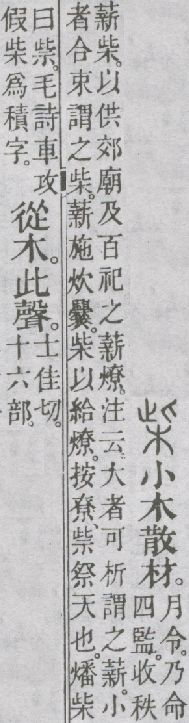 柴小木散材。
月令。乃命
四監。收秩
薪柴。以供郊廟及百祀之薪燎。注云。大者可析謂之薪。小
者合束謂之柴。薪施炊爨。柴以給燎。按尞、祡祭天也。燔柴
曰祡。毛詩車攻
假柴爲積字。
從木。此聲。
士佳切。
十六部。